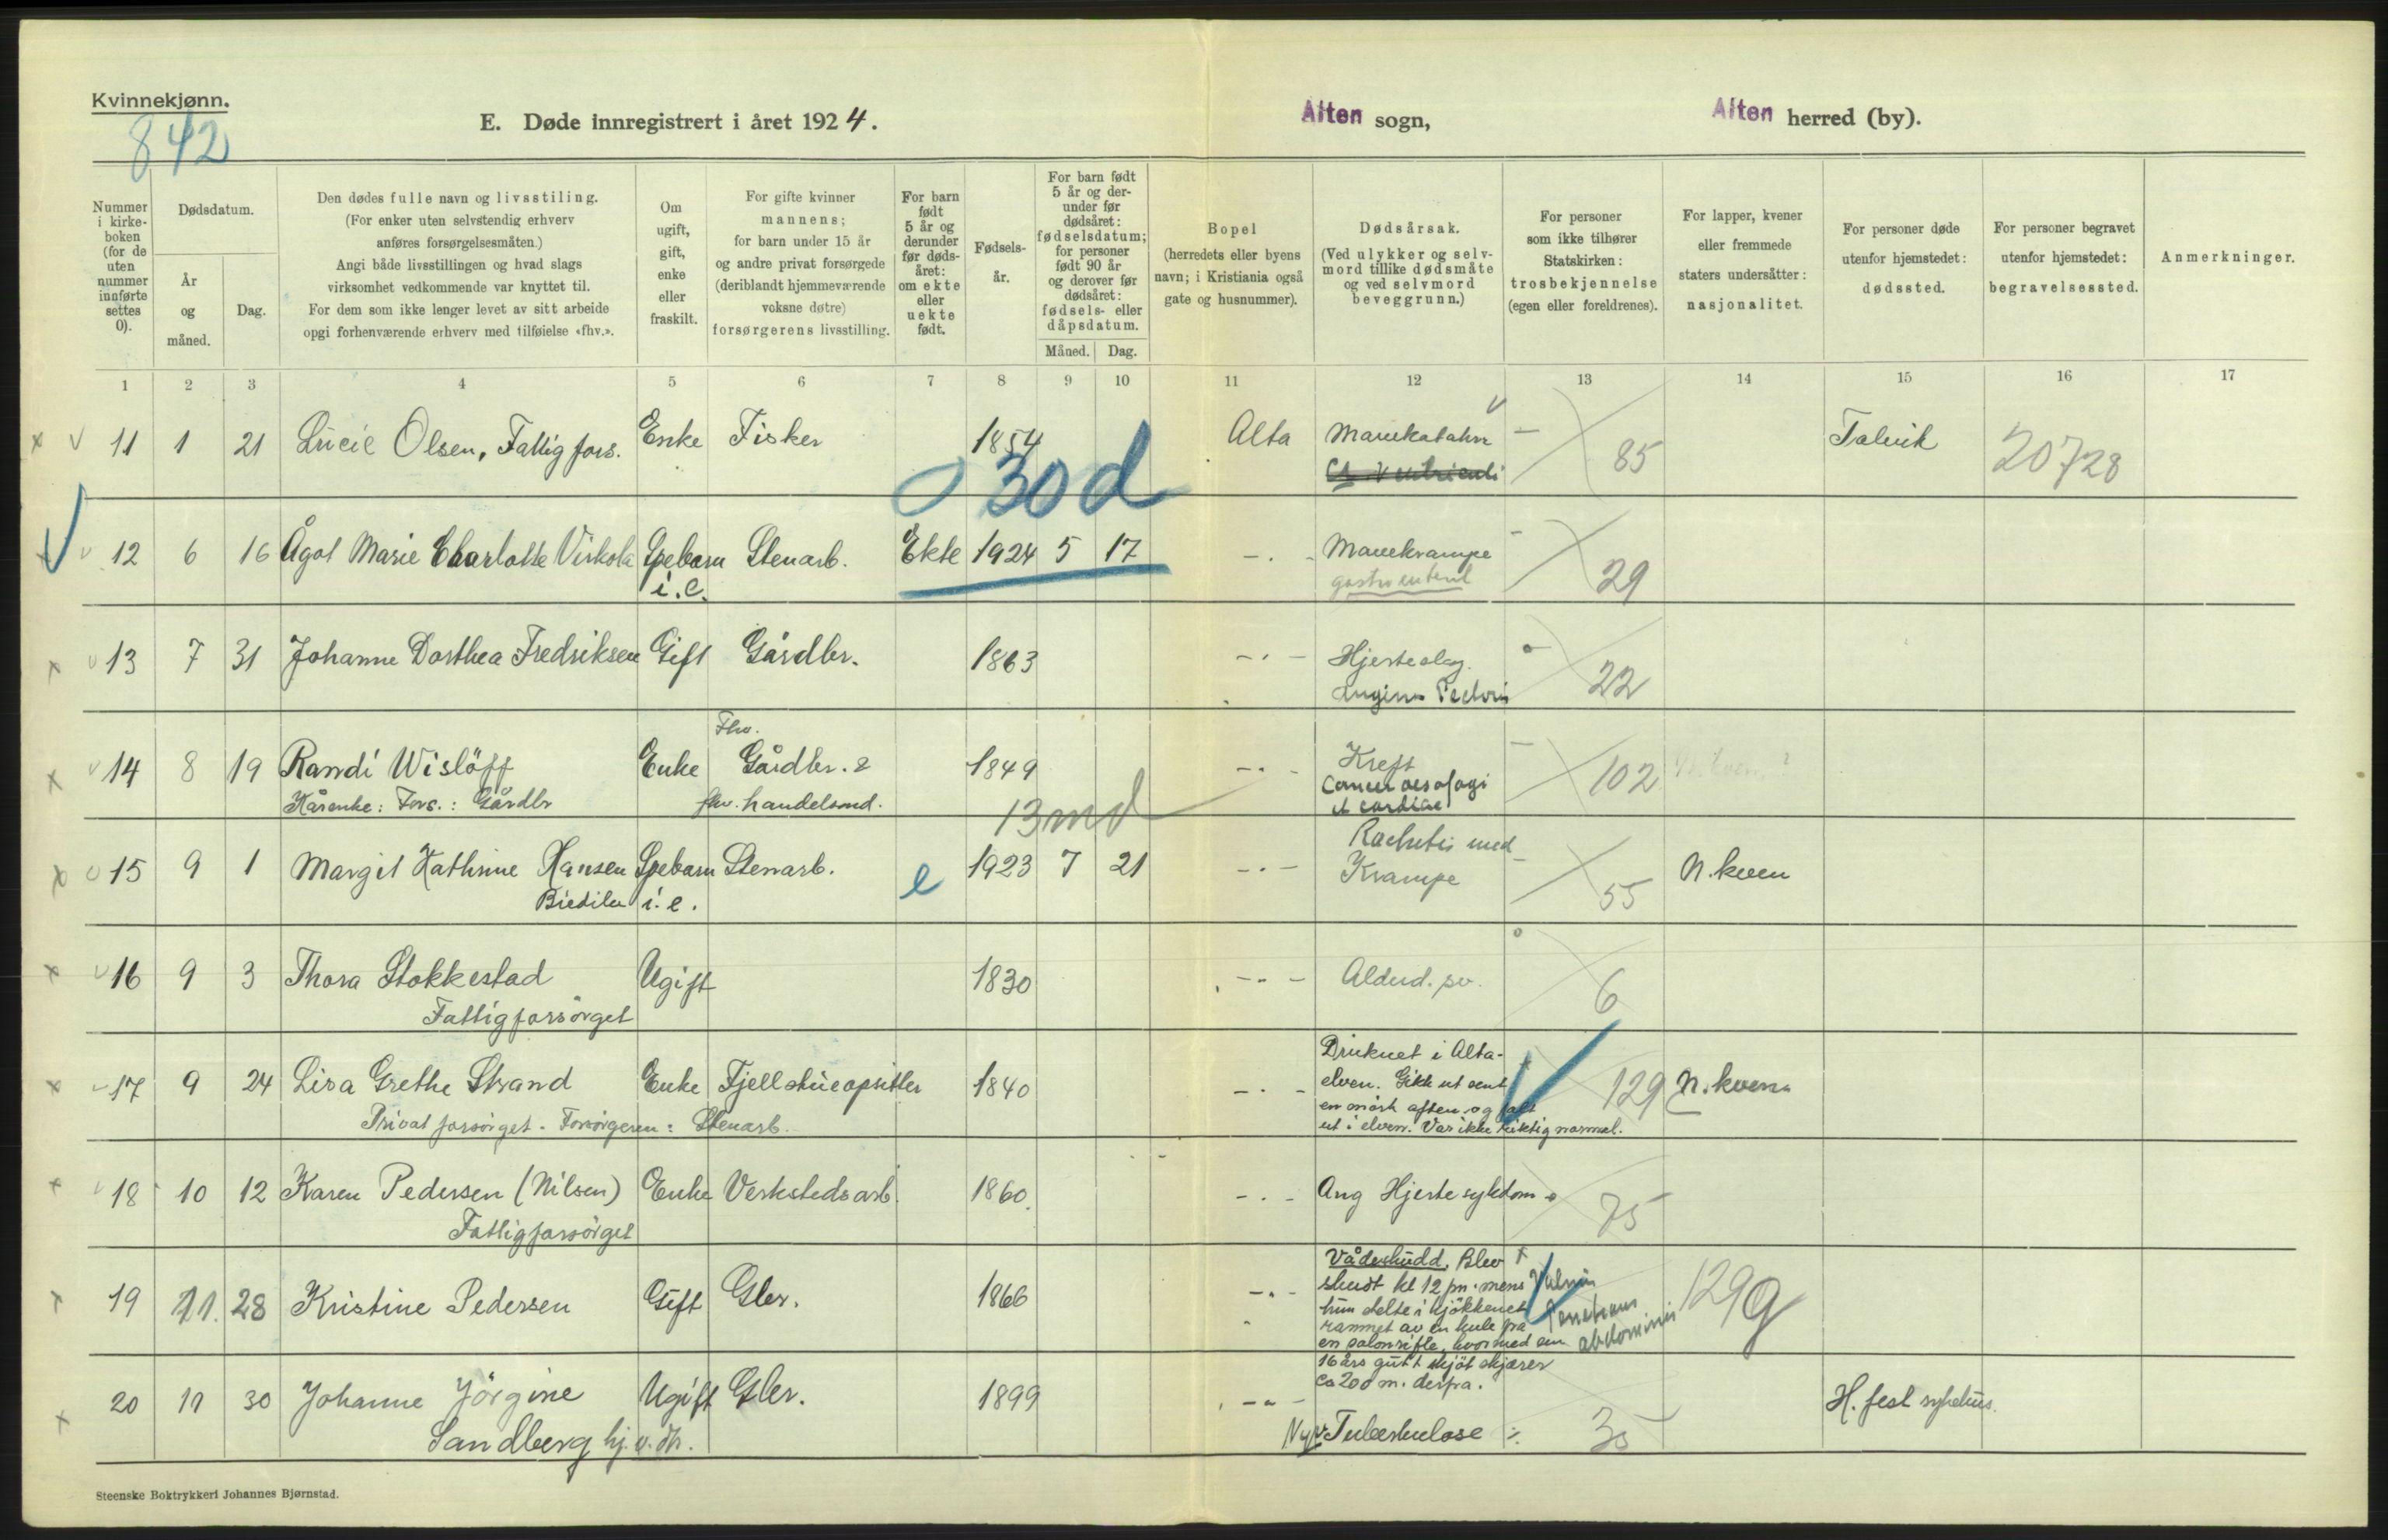 Kvinnekjønn.
842
E. Døde innregistrert i året 1924.
Alten sogn,
Alten herred (by).
Nummer i kirke-boken (for de uten nummer innførte settes 0).
Dødsdatum.
År og måned.
Dag.
Den dødes fulle navn og livsstiling.
(For enker uten selvstendig erhverv
anføres forsørgelsesmåten.)
Angi både livsstillingen og hvad slags
virksomhet vedkommende var knyttet til.
For dem som ikke lenger levet av sitt arbeide
opgi forhenværende erhverv med tilføielse «fhv.».
Om ugift, gift, enke eller fraskilt.
For gifte kvinner
mannens;
for barn under 15 år
og andre privat forsørgede
(deriblandt hjemmeværende
voksne døtre)
forsørgerens livsstilling.
For barn født 5 år og derunder før døds-året: om ekte eller uekte født.
Fødsels-år.
For barn født 5 år og der-under før dødsåret: fødselsdatum; for personer født 90 år og derover før dødsåret: fødsels- eller dåpsdatum.
Måned.
Dag.
Bopel
(herredets eller byens
navn; i Kristiania også
gate og husnummer).
Dødsårsak.
(Ved ulykker og selv-
mord tillike dødsmåte
og ved selvmord
beveggrunn.)
For personer
som ikke tilhører
Statskirken:
trosbekjennelse
(egen eller foreldrenes).
For lapper, kvener
eller fremmede
staters undersåtter:
nasjonalitet.
For personer døde
utenfor hjemstedet:
dødssted.
For personer begravet
utenfor hjemstedet:
begravelsessted.
Anmerkninger.
1 2 3 4 5 6 7 8 9 10 11 12 13 14 15 16 17
11 1 21 Lucie Olsen, Fattigfors. Enke Fisker 1854 Alta Mavekatahr 85 Talvik 20728
30 d
12 6 16 Ågot Marie Charlotte Virkola Spebarn Stenarb. Ekte 1924 5 17 -.- Mavekrampe 29
i. e. gastroenterit
13 7 31 Johanne Dorthea Fredriksen Gift Gårdbr. 1863 -.- Hjerteslag. 22
Angina Pectoris
Fhv.
14 8 19 Randi Wislöff Enke Gårdbr. & 1849 -.- Kreft 102
Kårenke: Fors.: Gårdbr fhv. handelsmd. Cancer oesofagi
et cardiae
13 md
15 9 1 Margit Kathrine Hansen Spebarn Stenarb. e 1923 7 21 -.- Rachitis med 55 N. kven
i. e. Krampe
16 9 3 Thora Stokkestad Ugift 1830 -.- Alderd. sv. 6
Fattigforsörget
17 9 24 Lisa Grethe Strand Enke Fjellstueopsitter 1840 -.- Druknet i Alta- 129 N. kven
Privat forsörget. Forsörgeren: Stenarb. elven. Gikk ut sent
en mörk aften og falt
ut i elven. Var ikke riktig normal.
18 10 12 Karen Pedersen (Nilsen) Enke Verkstedsarb. 1860. -.- Ang Hjertesykdom 75
Fattigforsörget
19 11. 28 Kristine Pedersen Gift Gbr. 1866 -.- Vådeskudd. Blev 129
skudt kl 12 pm. mens
hun stelte i kjökkenet
rammet av en kule fra
en salonrifle, hvormed en
16 års gutt skjöt skjærer
ca 200 m. derfra.
Vulnus
Penetrans
abdominis
20 11 30 Johanne Jörgine Ugift Gbr. 1899 -.- Tuberkulose 35 H. fest sykehus.
Sandberg hj. v. dtr.
Steenske Boktrykkeri Johannes Bjørnstad.